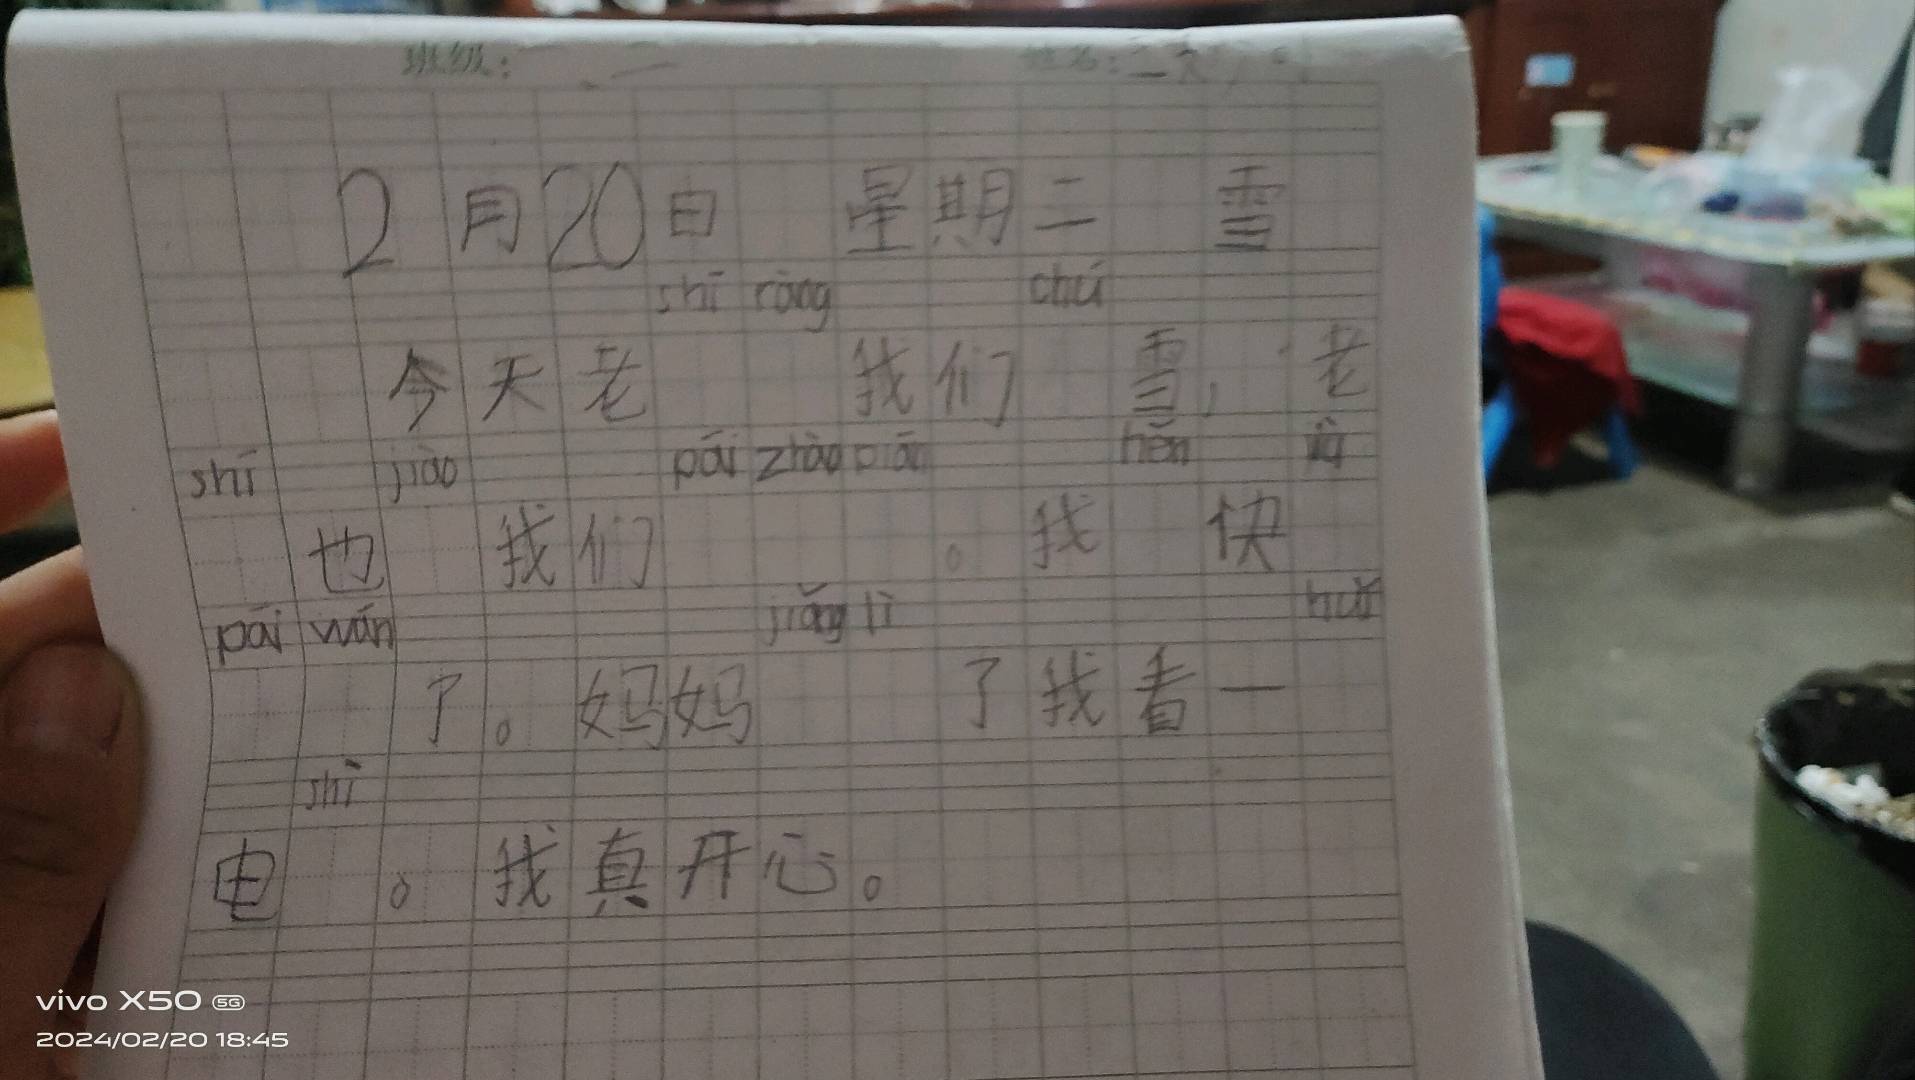 班级：一、二
2月20日 星期二 雪
shī ràng chú
今天老 我们 雪，老
shī jiào pāi zhào piān hěn
也 我们 。我 快
pāi wán jiǎng lì
了。妈妈 了我看一
shì
电 。我真开心。
vivo X50 5G
2024/02/20 18:45